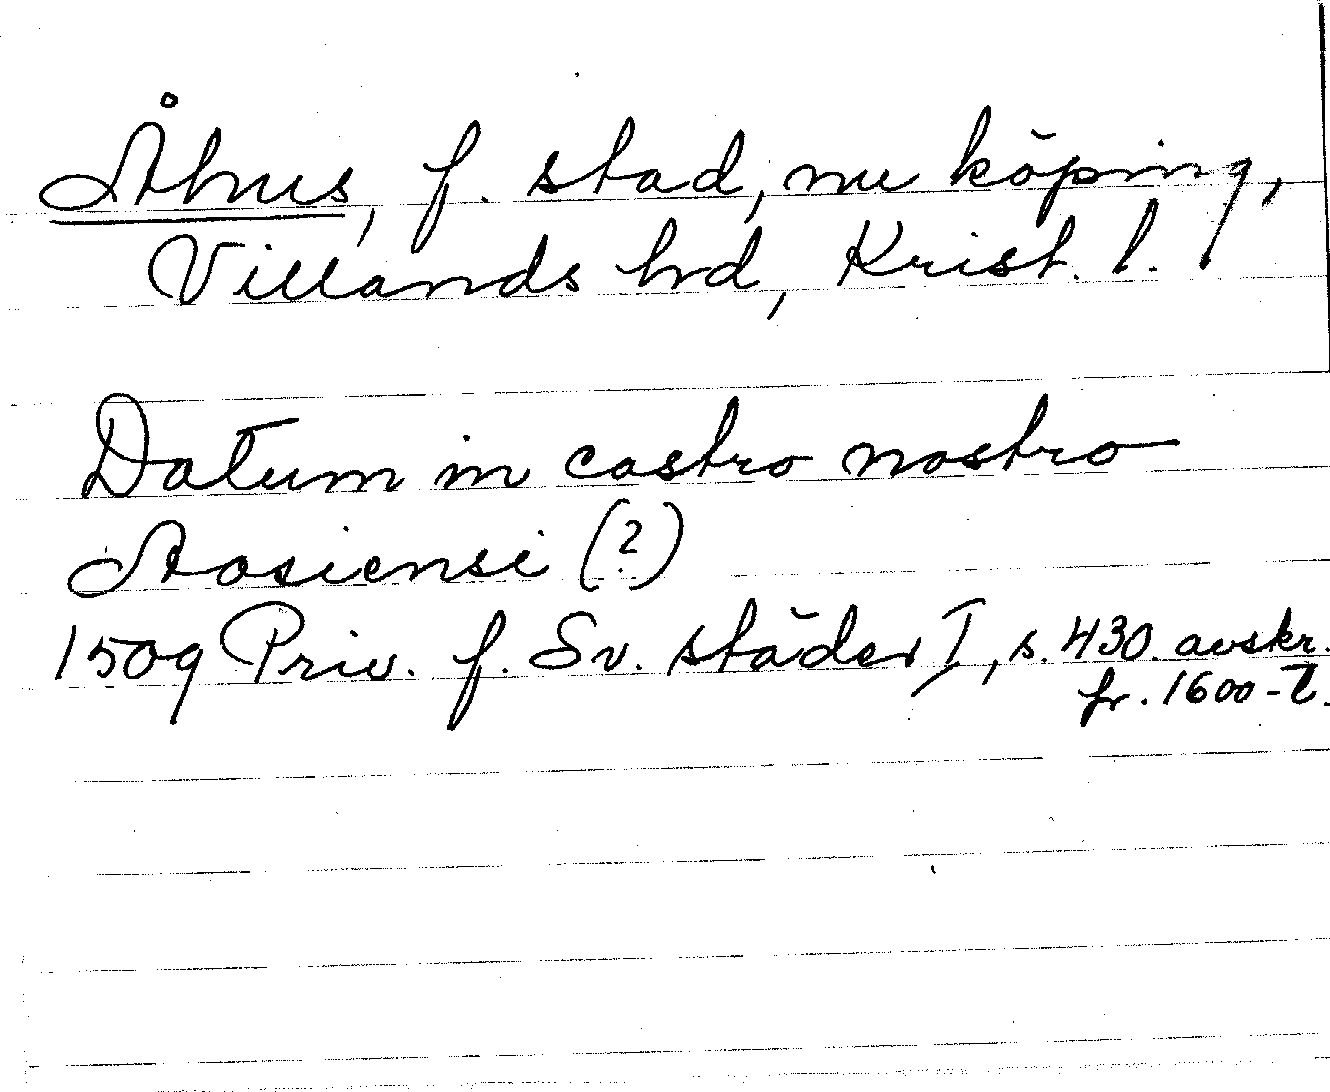 Åhus, f. stad, nu köping,
Villands hrd, Krist. l.
Datum in castro nostro
Aosiensi (?)
1509 Priv. f. Sv. städer I, s. 430. avskr.
fr. 1600-t.